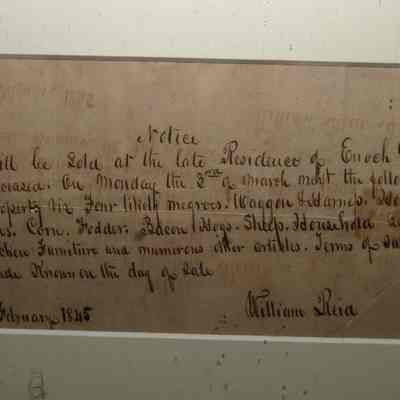 Notice
ill be Sold at the late Residence of Enoch
ceased. On Monday the 3rd of March next the follo
operty viz Four likely negroes. Waggon & Harness. Ho
s. Corn. Fodder. Bacon Hogs. Sheep. Household a
chen Furniture and numerous other articles. Terms of Sa
ade Known on the day of Sale
February 1845 William Reid